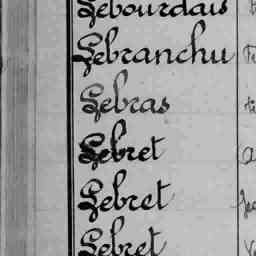 Lebourdais
Lebranchu
Lebras
Lebret
Lebret
Lebret